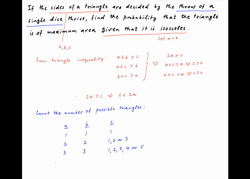 If the sides of a triangle are decided by the throw of a
single dice thrice, find the probability that the triangle
is of maximum area given that it is isosceles.
a, b, c
Let a = b
From triangle inequality:
a + b > c
b + c > a
2a > c
Count the number of possible triangles:
a b c
1 1 1
2 2 1, 2 or 3
3 3 1, 2, 3, 4 or 5